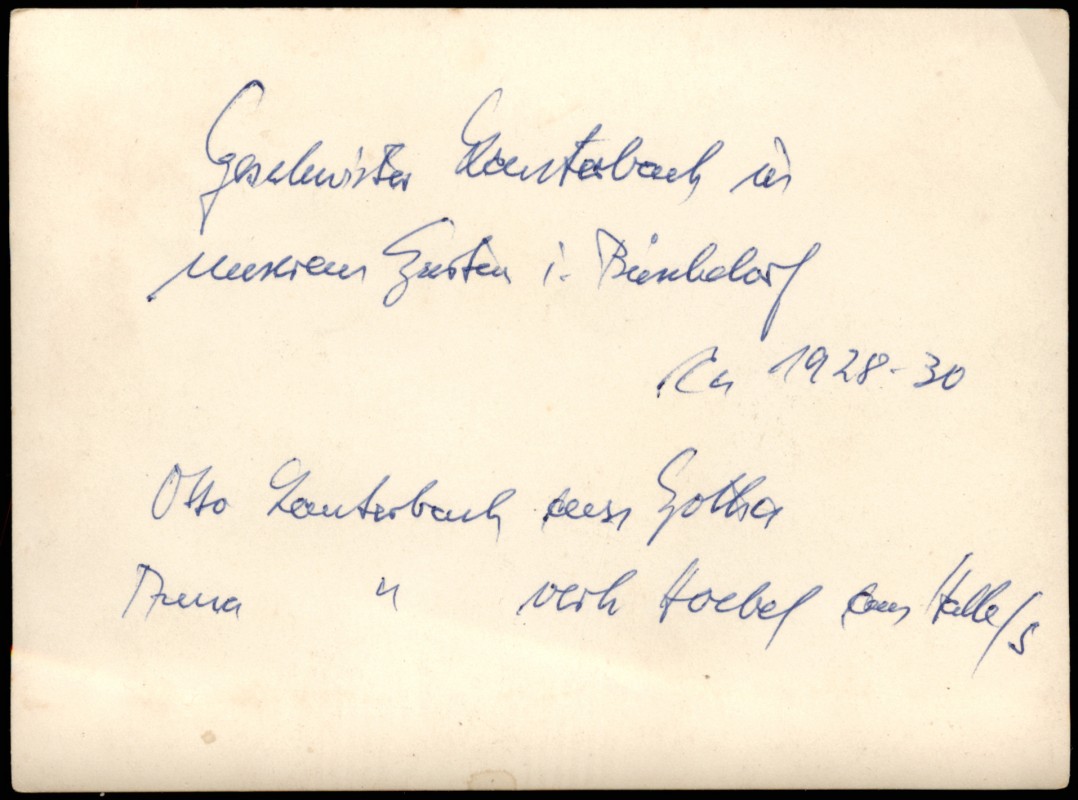 Geschwister Lauterbach in
unserem Garten i. Büschdorf
Ca 1928-30
Otto Lauterbach aus Gotha
Anna " verh Hoebel aus Halle/S